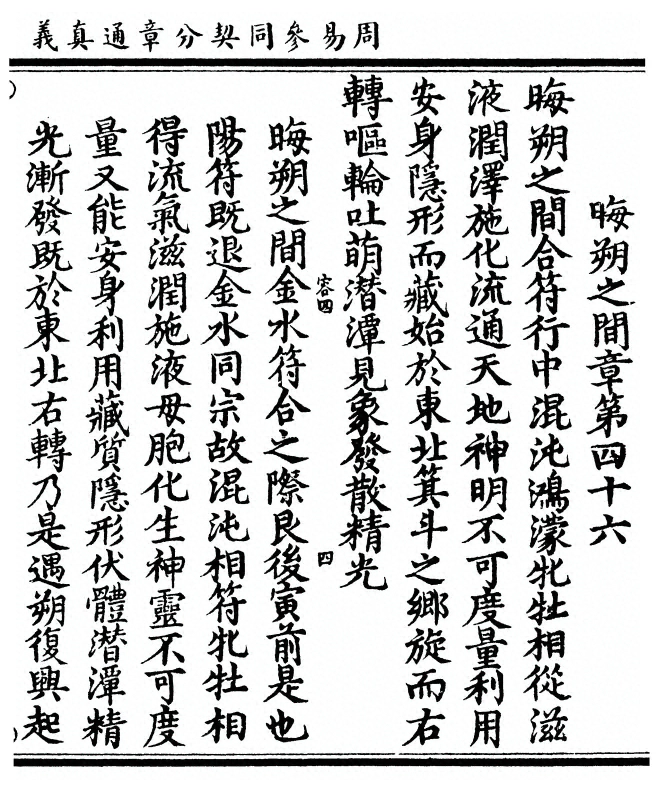 周易參同契分章通真義
晦朔之間章第四十六
晦朔之間合符行中混沌鴻濛牝牡相從滋
液潤澤施化流通天地神明不可度量利用
安身隱形而藏始於東北箕斗之鄉旋而右
轉嘔輪吐萌潛潭見象發散精光
容四
四
晦朔之間金水符合之際艮後寅前是也
陽符既退金水同宗故混沌相符牝牡相
得流氣滋潤施液母胞化生神靈不可度
量又能安身利用藏質隱形伏體潛潭精
光漸發既於東北右轉乃是遇朔復興起